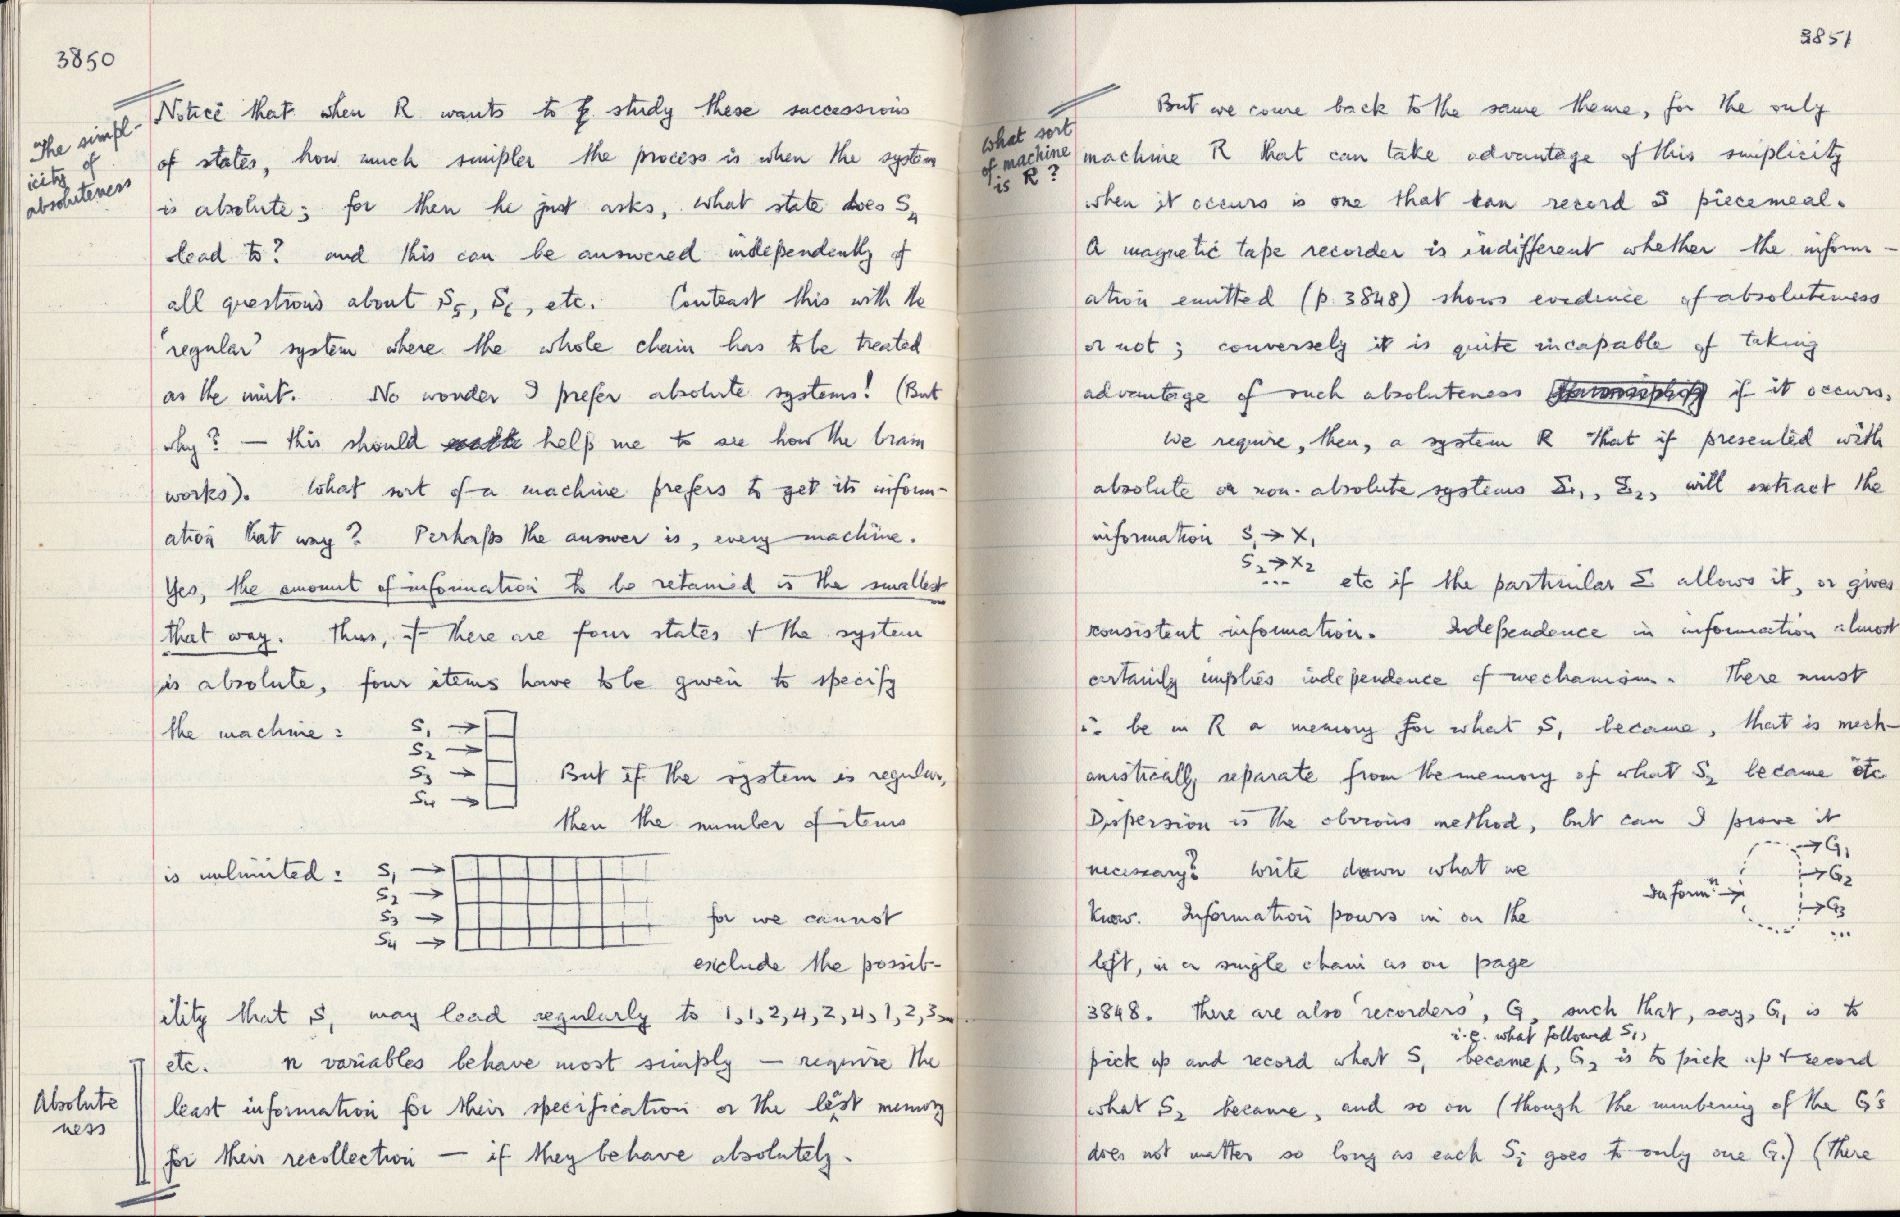 3850
The simpl-
icity of
absoluteness
Notice that when R wants to study these successions
of states, how much simpler the process is when the system
is absolute; for then he just asks, what state does S4
lead to? and this can be answered independently of
all questions about S5, S6, etc. Contrast this with the
'regular' system where the whole chain has to be treated
as the unit. No wonder I prefer absolute systems! (But
why? — this should help me to see how the brain
works). What sort of a machine prefers to get its inform-
ation that way? Perhaps the answer is, every machine.
Yes, the amount of information to be retained is the smallest
that way. Thus, if there are four states & the system
is absolute, four items have to be given to specify
the machine:
S1 →
S2 →
S3 →
S4 →
But if the system is regular,
then the number of items
is unlimited:
S1 →
S2 →
S3 →
S4 →
for we cannot
exclude the possib-
ility that S1 may lead regularly to 1,1,2,4,2,4,1,2,3,...
etc. n variables behave most simply — require the
Absolute
ness
least information for their specification or the least memory
for their recollection — if they behave absolutely.
3851
What sort
of machine
is R?
But we come back to the same theme, for the only
machine R that can take advantage of this simplicity
when it occurs is one that can record S piecemeal.
A magnetic tape recorder is indifferent whether the inform-
ation emitted (p. 3848) shows evidence of absoluteness
or not; conversely it is quite incapable of taking
advantage of such absoluteness if it occurs.
We require, then, a system R that if presented with
absolute or non-absolute systems Σ1, Σ2, will extract the
information S1 → X1
S2 → X2
... etc if the particular Σ allows it, or gives
consistent information. Independence in information almost
certainly implies independence of mechanism. There must
∴ be in R a memory for what S1 became, that is mech-
anistically separate from the memory of what S2 became etc
Dispersion is the obvious method, but can I prove it
necessary? Write down what we
know. Information pours in on the
left, in a single chain as on page
Informn →
→ G1
→ G2
→ G3
...
3848. There are also 'recorders', G, such that, say, G1 is to
i.e. what followed S1,
pick up and record what S1 became, G2 is to pick up & record
what S2 became, and so on (though the numbering of the G's
does not matter so long as each Si goes to only one G.) (There